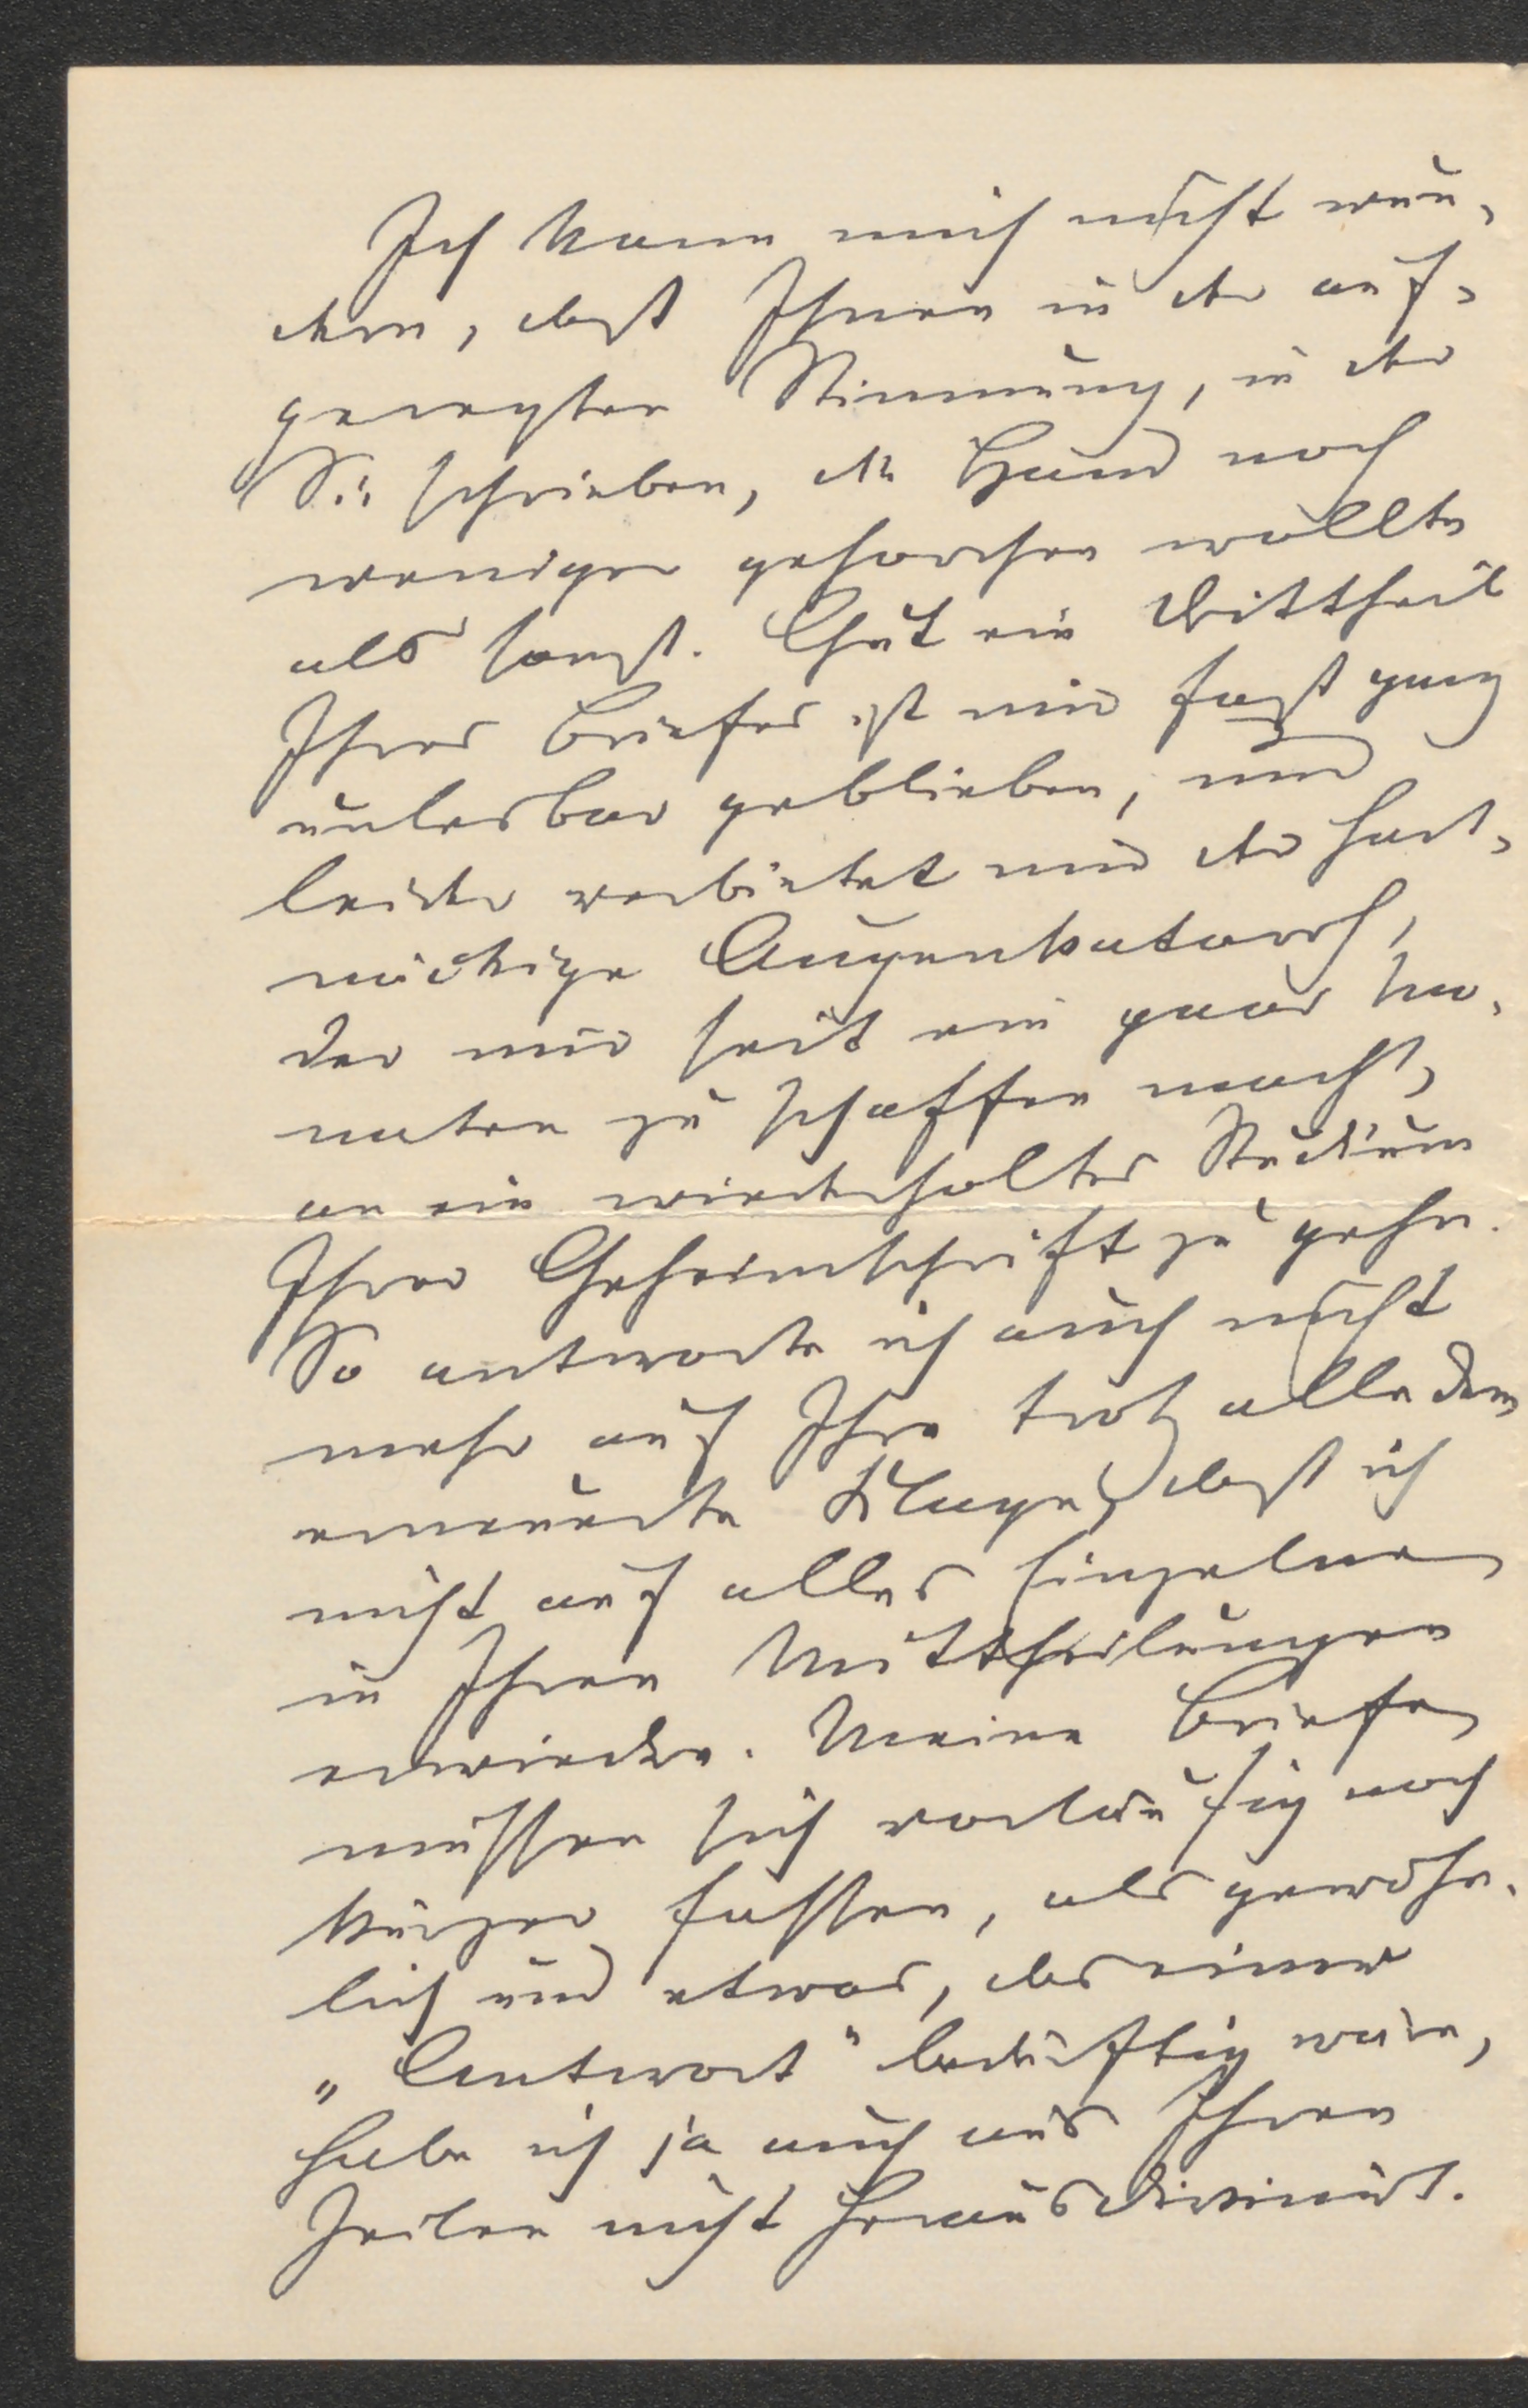 Ich kann mich nicht wun-
dern, daß Ihnen in der auf-
geregten Stimmung, in der
Sie schrieben, die Hand noch
weniger gehorchen wollte
als sonst. Gut ein Drittheil
Ihres Briefes ist mir fast ganz
unlesbar geblieben, und
leider verbietet mir der hart-
näckige Augenkatarrh,
der mir seit ein paar Mo-
naten zu schaffen macht,
an ein wiederholtes Studium
Ihrer Geheimschrift zu gehn.
So antworte ich auch nicht
mehr auf Ihre trotz alledem
erneuerte Klage, daß ich
nicht auf alles Einzelne
in Ihren Mittheilungen
erwiedre. Meine Briefe
müssen sich vorläufig noch
kürzer fassen, als gewöhn-
lich und etwas, das einer
„Antwort" bedürftig wäre,
habe ich ja auch aus Ihren
Zeilen nicht herausdivinirt.